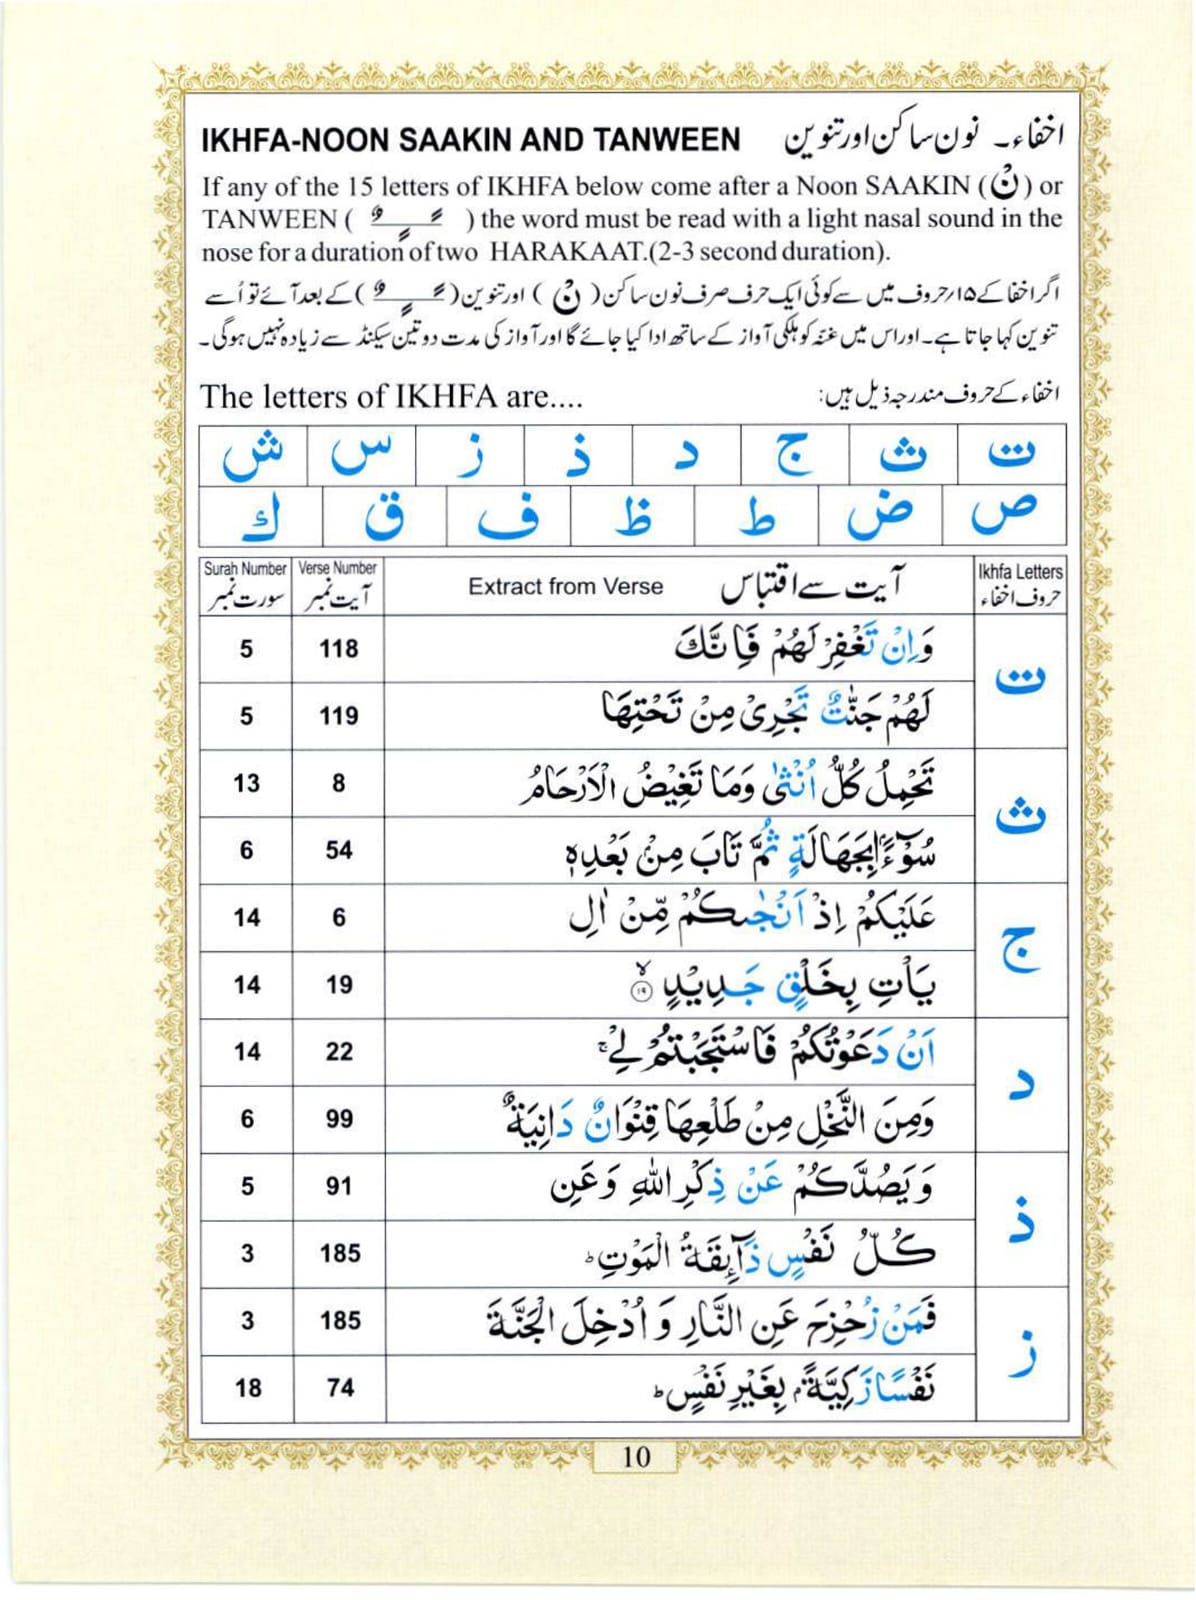 IKHFA-NOON SAAKIN AND TANWEEN اخفاء۔ نون ساکن اور تنوین
If any of the 15 letters of IKHFA below come after a Noon SAAKIN (نْ) or
TANWEEN ( ـًـٍـٌ ) the word must be read with a light nasal sound in the
nose for a duration of two HARAKAAT.(2-3 second duration).
اگر اخفا کے ۱۵/حروف میں سے کوئی ایک حرف صرف نون ساکن( نْ ) اور تنوین( ـًـٍـٌ )کے بعد آئے تو اُسے
تنوین کہا جاتا ہے۔ اور اس میں غنّہ کو ہلکی آواز کے ساتھ ادا کیا جائے گا اور آواز کی مدت دو تین سیکنڈ سے زیادہ نہیں ہوگی۔
The letters of IKHFA are.... اخفاء کے حروف مندرجہ ذیل ہیں:
ت ث ج د ذ ز س ش
ص ض ط ظ ف ق ك
Surah Number Verse Number Extract from Verse آیت سے اقتباس Ikhfa Letters
سورت نمبر آیت نمبر حروف اخفاء
5 118 وَاِنْ تَغْفِرْ لَهُمْ فَاِنَّكَ
ت
5 119 لَهُمْ جَنّٰتٌ تَجْرِىْ مِنْ تَحْتِهَا
13 8 تَحْمِلُ كُلُّ اُنْثٰى وَمَا تَغِيْضُ الْاَرْحَامُ
ث
6 54 سُوْٓءًۢا بِجَهَالَةٍ ثُمَّ تَابَ مِنْۢ بَعْدِهٖ
14 6 عَلَيْكُمْ اِذْ اَنْجٰٮكُمْ مِّنْ اٰلِ
ج
14 19 يَاْتِ بِخَلْقٍ جَدِيْدٍ ۙ‏ ۱۹
14 22 اَنْ دَعَوْتُكُمْ فَاسْتَجَبْتُمْ لِىْ ۚ
د
6 99 وَمِنَ النَّخْلِ مِنْ طَلْعِهَا قِنْوَانٌ دَانِيَةٌ
5 91 وَيَصُدَّكُمْ عَنْ ذِكْرِ اللّٰهِ وَعَنِ
ذ
3 185 كُلُّ نَفْسٍ ذَآٮِٕقَةُ الْمَوْتِ ؕ
3 185 فَمَنْ زُحْزِحَ عَنِ النَّارِ وَ اُدْخِلَ الْجَنَّةَ
ز
18 74 نَفْسًا زَكِيَّةًۢ بِغَيْرِ نَفْسٍ ؕ
10